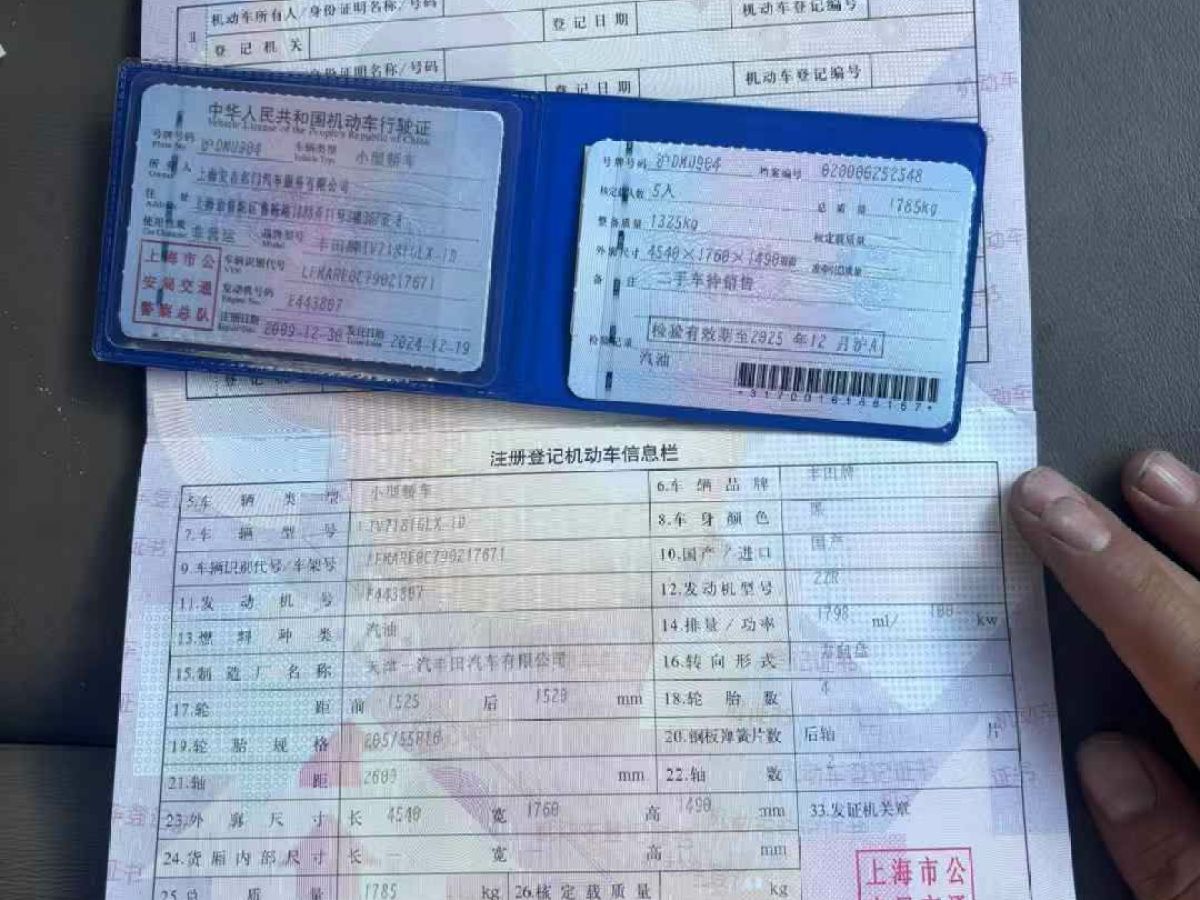 机动车所有人/身份证明名称/号码 登记日期 机动车登记编号
Ⅱ 登记机关
身份证明名称/号码 登记日期 机动车登记编号
中华人民共和国机动车行驶证
Vehicle License of the People's Republic of China
号牌号码 沪DMU904 车辆类型 小型轿车
Plate No. Vehicle Type
所有人 汽车服务有限公司
Owner
住址
使用性质 非营运 品牌型号 丰田牌TV7181GLX-iD
Model
上海市公安局交通警察总队
车辆识别代号 LFMARE0C790217671
VIN
发动机号码 E443807
Engine No.
注册日期 2009-12-30 发证日期 2024-12-19
号牌号码 沪DMU904 档案编号 020006252548
核定载人数 5人 总质量 1785kg
整备质量 1325kg 核定载质量
外廓尺寸 4540×1760×1490mm 准牵引总质量
备注 二手车待销售
检验记录 检验有效期至2025年12月沪A
汽油
注册登记机动车信息栏
5.车辆类型 小型轿车 6.车辆品牌 丰田牌
7.车辆型号 TV7181GLX-iD 8.车身颜色 黑
9.车辆识别代号/车架号 LFMARE0C790217671 10.国产/进口 国产
11.发动机号 E443807 12.发动机型号 2ZR
13.燃料种类 汽油 14.排量/功率 1798 ml/ 100 kw
15.制造厂名称 天津一汽丰田汽车有限公司 16.转向形式 方向盘
17.轮距 前 1525 后 1520 mm 18.轮胎数 4
19.轮胎规格 205/55R16 20.钢板弹簧片数 后轴 片
21.轴距 2600 mm 22.轴数 2
23.外廓尺寸 长 4540 宽 1760 高 1490 mm 33.发证机关章
24.货厢内部尺寸 长 宽 高 mm
25.总质量 1785 kg 26.核定载质量 kg
上海市公